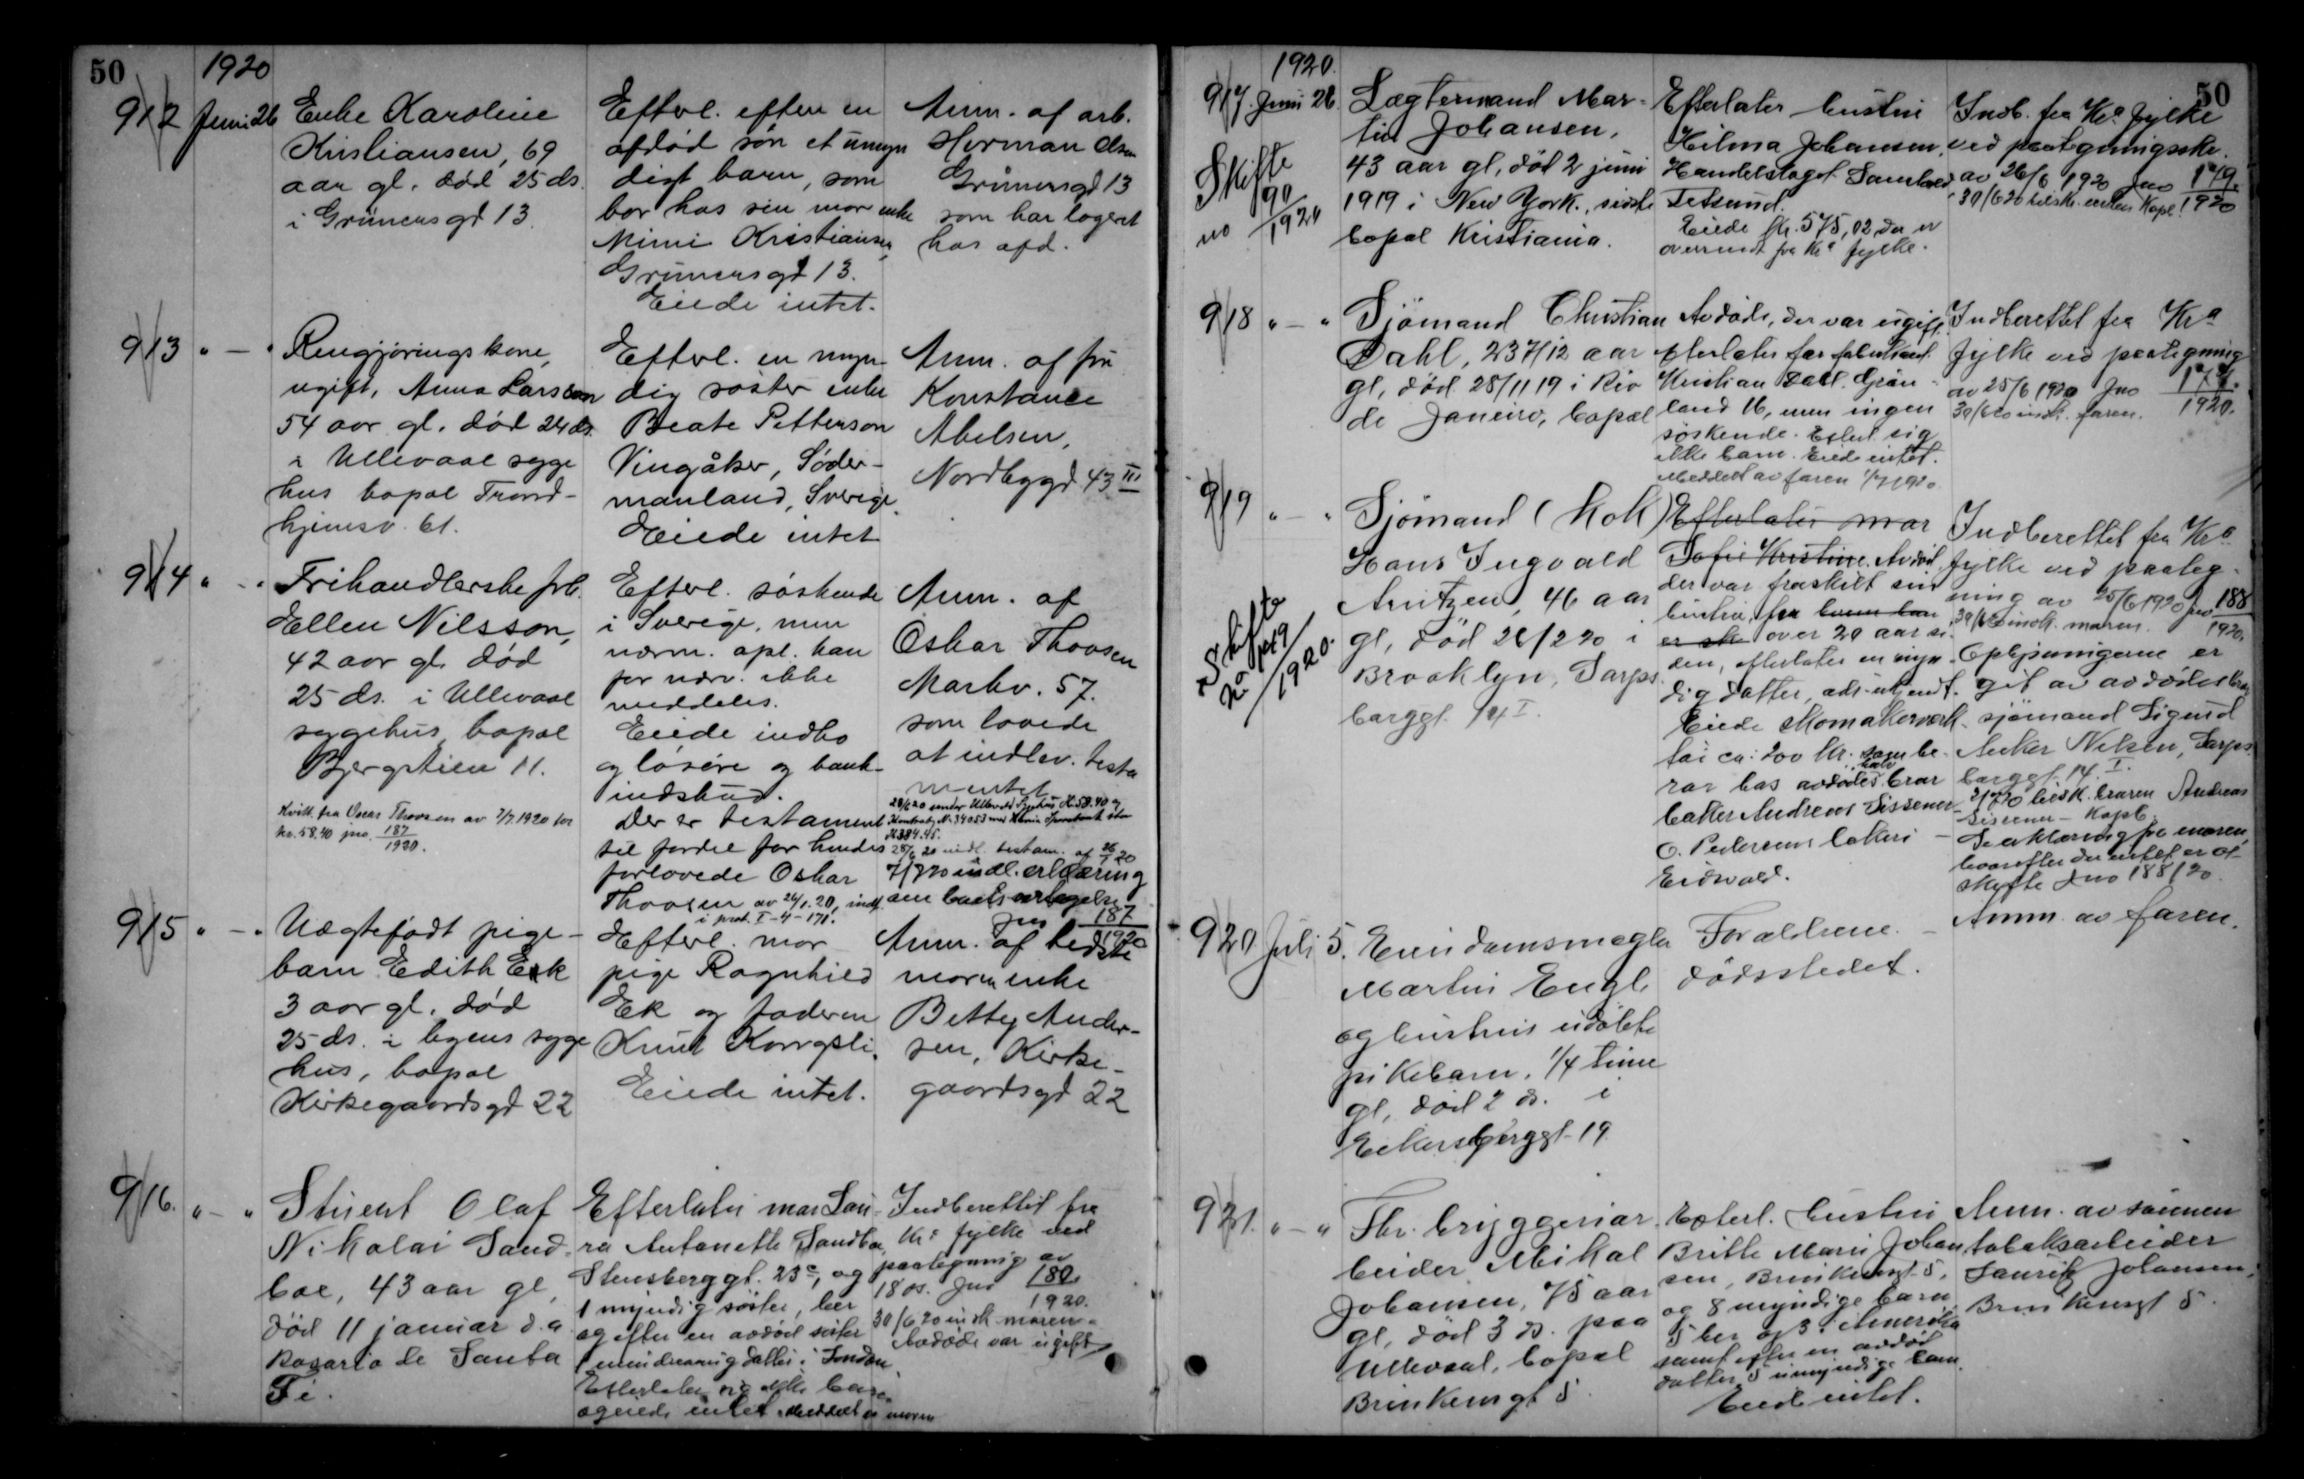 50
1920
912 Juni 26
Enke Karoline
Kristiansen, 69
aar gl. død 25 ds.
i Grünersgd 13.
Efterl. efter en
afdød søn et umyn
digt barn, som
bor hos sin mor enke
Mimi Kristiansen,
Grünersgd 13.
Eiede intet.
Anm. af arb.
Herman Olsen
Grünersgd 13
som har logeret
hos afd.
913 " — "
Rengjøringskone,
ugift, Anna Larsson
54 aar gl. død 24 ds.
i Ullevaal syge
hus bopæl Trond-
hjemsv. 61.
Efterl. en myn-
dig søster enke
Beate Petterson
Vingåker, Söder-
manland, Sverige.
Eiede intet
Anm. af fru
Konstance
Abelsen,
Nordbygd 43 III
914 " — "
Frihandlerske frk.
Ellen Nilsson,
42 aar gl. død
25 ds. i Ullevaal
sygehus, bopæl
Bjergstien 11.
Kvitt. fra Oscar Thoosen av 7/7 1920 for
kr. 58.40 jno. 187/1920.
Efterl. søskende
i Sverige, men
nærm. opl. kan
for nærv. ikke
meddeles.
Eiede indbo
og løsøre og bank-
indskud.
Der er testament
til fordel for hendes
forlovede Oskar
Thoosen av 26/1.20, indf.
i prot. I-4-171.
Anm. af
Oskar Thoosen
Markv. 57.
som lovede
at indlev. testa
mentet
28/6 20 sender Ullevaal Sygehus Kr. 58.40 og
Kontrabog No 34053
Kr 384.45.
28/6 20 indl. testam. af 26/1 20
7/7 20 indl. erklæring
om boets overtagelse
Jno 187/1920
915 " — "
Uægtefødt pige-
barn Edith Ek
3 aar gl. død
25 ds. i byens syge
hus, bopæl
Kirkegaardsgd 22
Efterl. mor
pige Ragnhild
Ek og faderen
Knut
Eiede intet.
Anm. af bedste
moren enke
Betty Ander-
sen, Kirke-
gaardsgd 22
916. " — "
Stuert Olaf
Nikolai Sand-
boe, 43 aar gl,
død 11 januar d.a
Rosario de Santa
Fé.
Efterlater mor Lau-
ra Antonette Sandbo,
Stensberggt. 23c, og
1 myndig søster, her
og efter en avdød søster
1 mindreaarig datter i London
Efterlater sig ikke barn
og eiede intet. Meddelt av moren
Indberettet fra
Kra fylke ved
paategning av
18 ds. Jno 180/1920.
30/6 20 indk. moren.
Avdøde var ugift
1920.
50
917. Juni 26.
Skifte
no 90/1920
Lægtermand Mar-
tin Johansen,
43 aar gl, død 2 juni
1919 i New York, sidste
bopæl Kristiania.
Efterlater hustru
Hilma Johansen,
Handelslaget Samhold,
Fetsund.
Eiede kr. 575,02 der er
oversendt fra Kra fylke.
Indb. fra Kra fylke
ved paategningsskr.
av 26/6 1920 Jno 179/1920
30/6 20 tilskr. enken Kopl.
918 " — "
Sjömand Christian
Dahl, 23 7/12 aar
gl, død 28/11 19 i Rio
de Janeiro, bopæl
Avdøde, der var ugift,
efterlater far fabrikant
Kristian Dahl, Grön-
land 16, men ingen
søskende. Efterl. sig
ikke barn. Eiede intet.
Meddelt av faren 1/7 1920.
Indberettet fra Kra
fylke ved paategning
av 25/6 1920 Jno 177/1920.
30/6 20 indk. faren.
919 " — "
Skifte
No 99/1920.
Sjömand (Kok)
Hans Ingvald
Arntzen, 46 aar
gl, død 26/2 20 i
Brooklyn, Sarps
borggt. 14 I.
Efterlater mor
Sofie Kristine. Avdøde,
der var fraskilt sin
hustru, fra hvem han
er ski over 20 aar si-
den, efterlater en myn-
dig datter, adr. ukjendt.
Eiede skomakerverk-
töi ca. 200 kr. som be-
ror hos avdødes halvbror
baker Andreas Sissener
C. Pedersens bakeri —
Eidsvold.
Indberettet fra Kra
fylke ved paateg-
ning av 25/6 1920 jno 188/1920.
30/6 20 indk. moren.
Oplysningerne er
git av avdødes bror
sjömand Sigurd
Anker Nilsen, Sarps
borggt. 14. I.
2/7 20 tilsk. broren Andreas
Sissener — Kopb.
Se erklæring fra moren,
hvorefter der intet er at
skifte Jno 188/20.
920 Juli 5.
Eiendomsmegler
Martin Engh
og hustrus udøbte
pikebarn, 1/4 time
gl, død 2 ds. i
Eckersberggt. 19
Forældrene. —
dødsstedet.
Anm. av faren.
921. " — "
Fhr. bryggeriar-
beider Mikal
Johansen, 75 aar
gl, død 3 ds. paa
Ullevaal, bopæl
Brinkensgt 5.
Efterl. hustru
Britte Marie Johan-
sen, Brinkensgt. 5,
og 8 myndige barn,
5 her og 3 i Amerika
samt efter en avdød
datter 5 umyndige barn.
Eiede intet.
Anm. av sønnen
tobaksarbeider
Lauritz Johansen,
Brinkensgt 5.